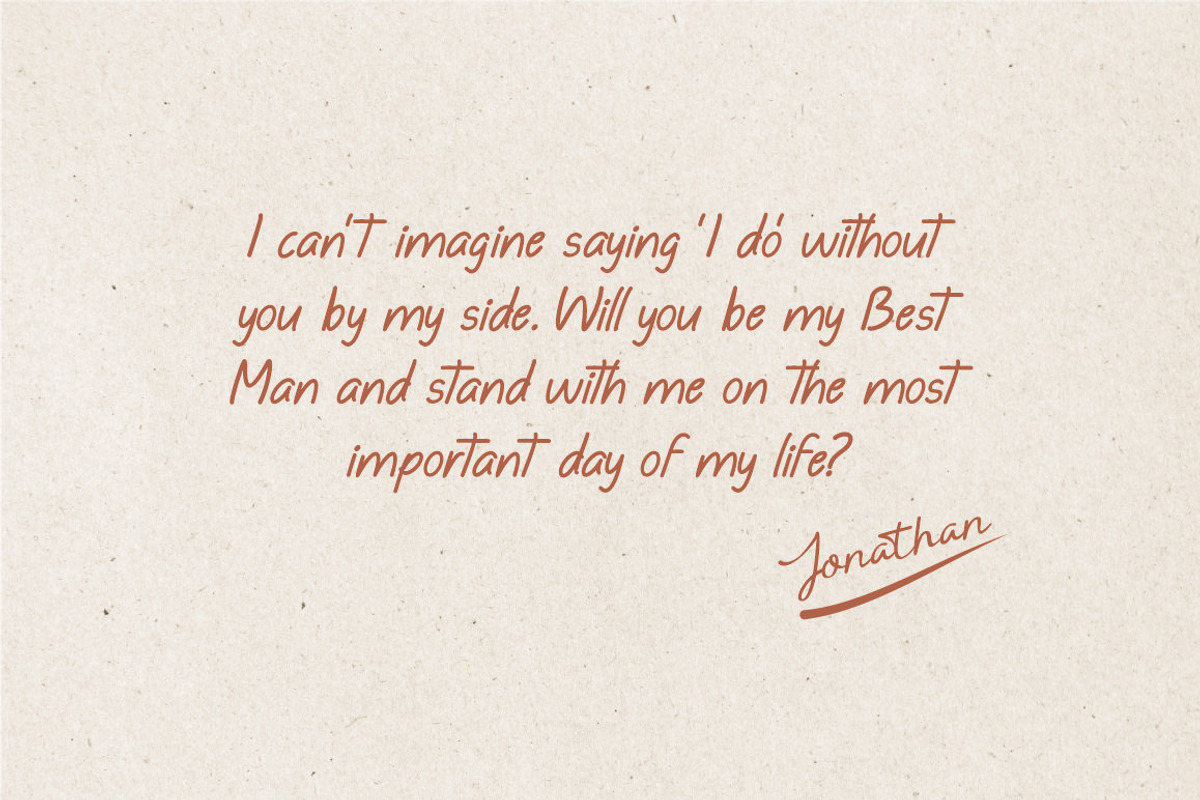 I can't imagine saying 'I do' without
you by my side. Will you be my Best
Man and stand with me on the most
important day of my life?
Jonathan